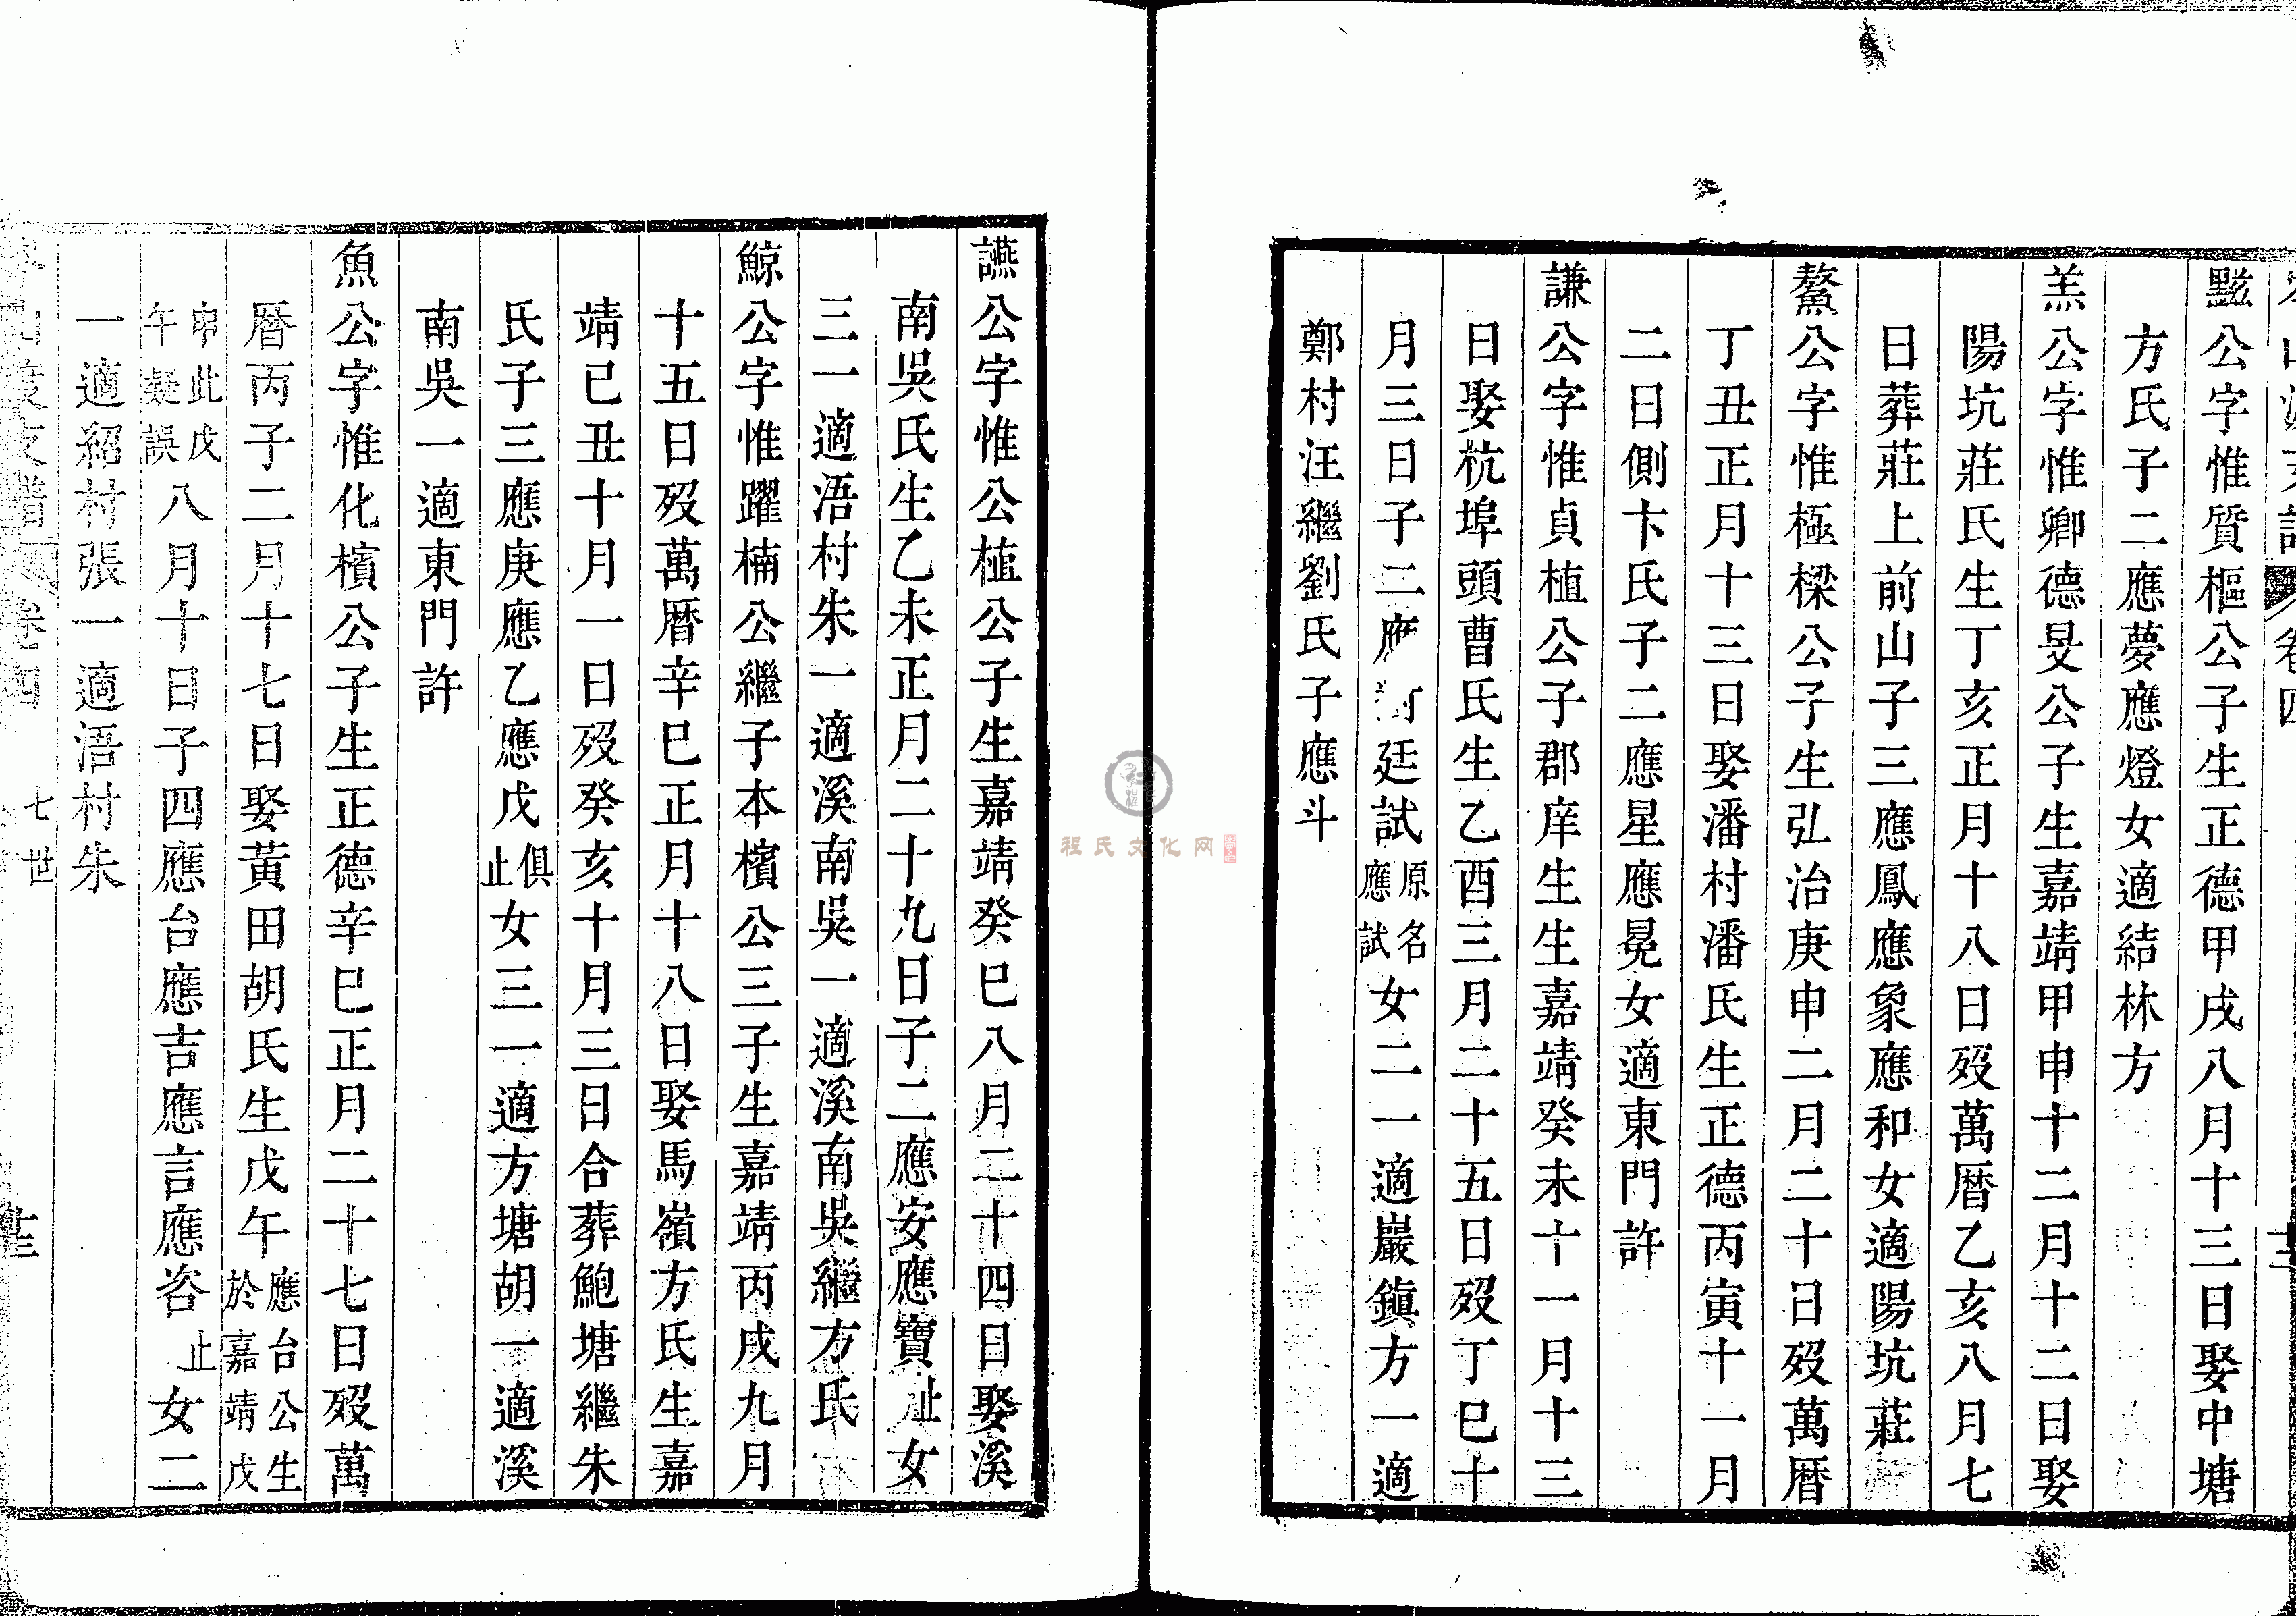 公字惟質樞公子生正德甲戌八月十三日娶中塘
方氏子二應夢應燈女適結林方
羔公字惟卿德旻公子生嘉靖甲申十二月十二日娶
陽坑莊氏生丁亥正月十八日歿萬曆乙亥八月七
日葬莊上前山子三應鳳應象應和女適陽坑莊
鰲公字惟極樑公子生弘治庚申二月二十日歿萬曆
丁丑正月十三日娶潘村潘氏生正德丙寅十一月
二日側卞氏子二應星應晃女適東門許
謙公字惟貞植公子郡庠生生嘉靖癸未十一月十三
日娶杭埠頭曹氏生乙酉三月二十五日歿丁巳十
月三日子二應 廷試原名應試女二一適巖鎮方一適
鄭村汪繼劉氏子應斗
讌公字惟公植公子生嘉靖癸巳八月二十四日娶溪
南吳氏生乙未正月二十九日子二應安應寶止女
三一適浯村朱一適溪南吳一適溪南吳繼方氏
鯨公字惟躍楠公繼子本檳公三子生嘉靖丙戌九月
十五日歿萬曆辛巳正月十八日娶馬嶺方氏生嘉
靖己丑十月一日歿癸亥十月三日合葬鮑塘繼朱
氏子三應庚應乙應戊俱止女三一適方塘胡一適溪
南吳一適東門許
魚公字惟化檳公子生正德辛巳正月二十七日歿萬
曆丙子二月十七日娶黃田胡氏生戊午應台公生於嘉靖戊
申此戊午疑誤八月十日子四應台應吉應言應咨止女二
一適紹村張一適浯村朱
卷四
七世
程氏文化网